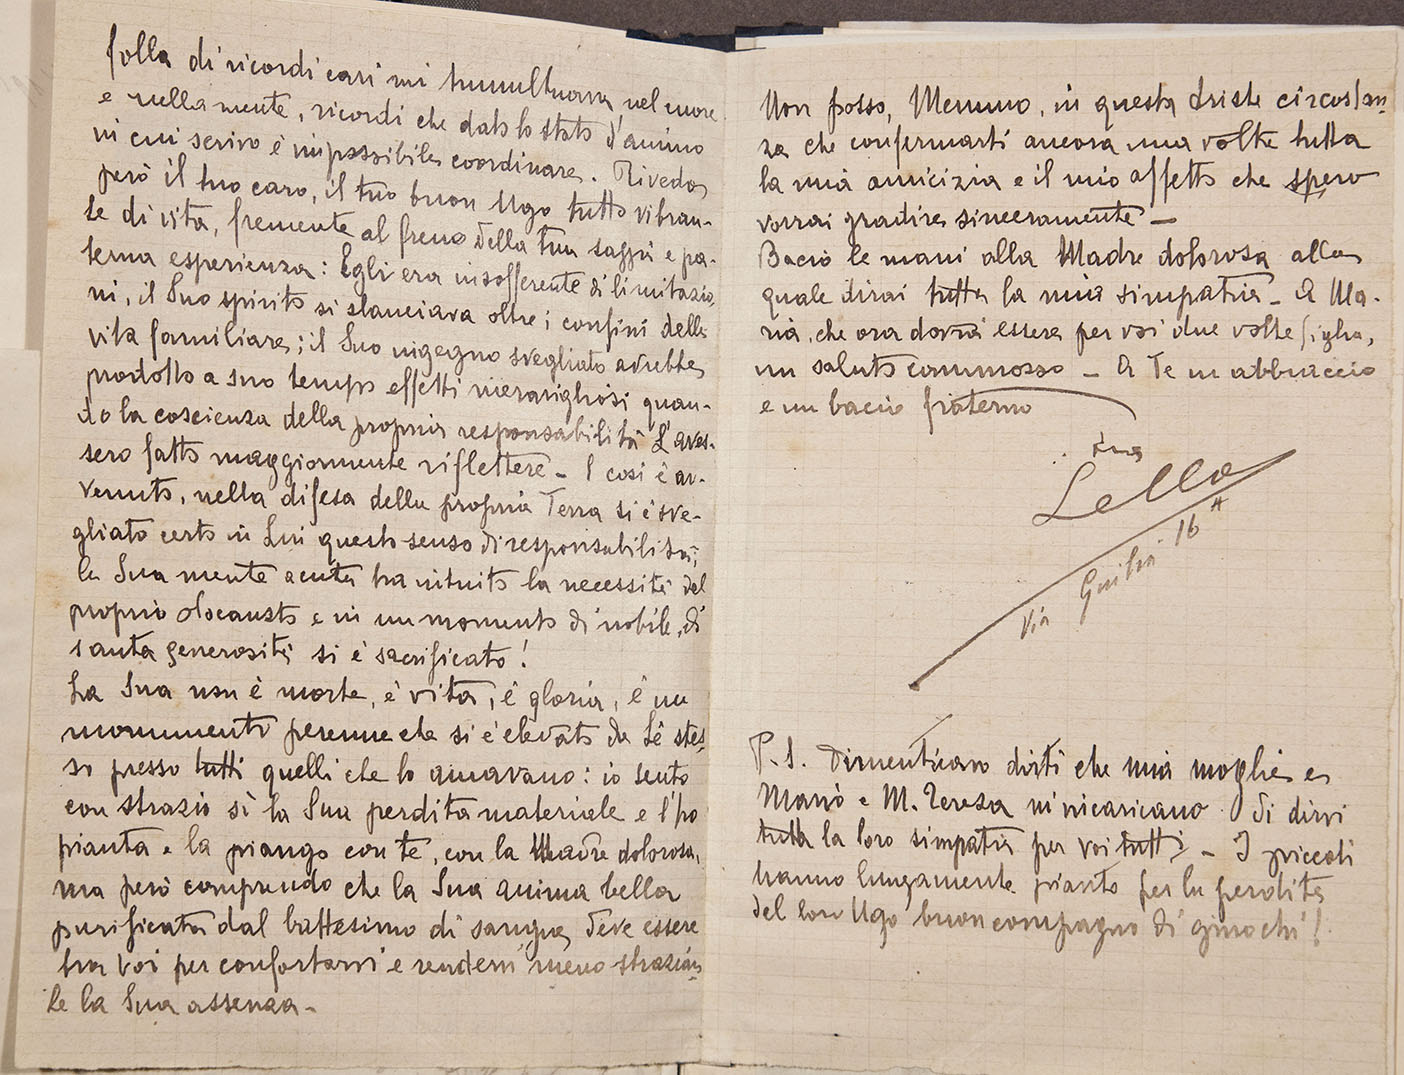 folla di ricordi cari mi tumultuano nel cuore
e nella mente, ricordi che dato lo stato d'animo
in cui scrivo è impossibile coordinare. Rivedo
però il tuo caro, il tuo buon Ugo tutto vibran-
te di vita, fremente al freno della tua saggia e pa-
terna esperienza: Egli era insofferente di limitazio
ni, il Suo spirito si slanciava oltre i confini della
vita familiare; il Suo ingegno svegliato avrebbe
prodotto a suo tempo effetti meravigliosi quan-
do la coscienza della propria responsabilità L'aves-
sero fatto maggiormente riflettere – E così è av-
venuto, nella difesa della propria Terra si è sve-
gliato certo in Lui questo senso di responsabilità;
la Sua mente acuta ha intuito la necessità del
proprio olocausto e in un momento di nobile, di
santa generosità si è sacrificato!
La Sua non è morte, è vita, è gloria, è un
monumento perenne che si è elevato da Sè stes-
so presso tutti quelli che lo amavano: io sento
con strazio sì la Sua perdita materiale e l'ho
pianta e la piango con te, con la Madre dolorosa,
ma però comprendo che la Sua anima bella
purificata dal battesimo di sangue deve essere
tra Voi per confortarvi e rendervi meno strazian
te la Sua assenza –
Non posso, Memmo, in questa triste circostan-
za che confermarti ancora una volta tutta
la mia amicizia e il mio affetto che spero
vorrai gradire sinceramente –
Bacio le mani alla Madre dolorosa alla
quale dirai tutta la mia simpatia – A Ma-
ria, che ora dovrà essere per voi due volte figlia,
un saluto commosso – A Te un abbraccio
e un bacio fraterno
Tuo
Lello
Via Giulia 16 A
P.S. Dimenticavo dirti che mia moglie e
Mario e M. Teresa m'incaricano di dirvi
tutta la loro simpatia per voi tutti – I piccoli
hanno lungamente pianto per la perdita
del loro Ugo buon compagno di giuochi!